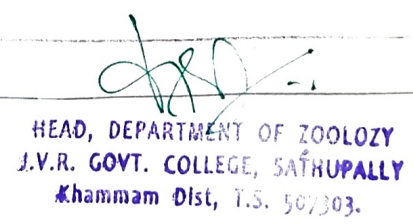 HEAD, DEPARTMENT OF ZOOLOZY
J.V.R. GOVT. COLLEGE, SATHUPALLY
Khammam Dist, T.S. 507303.